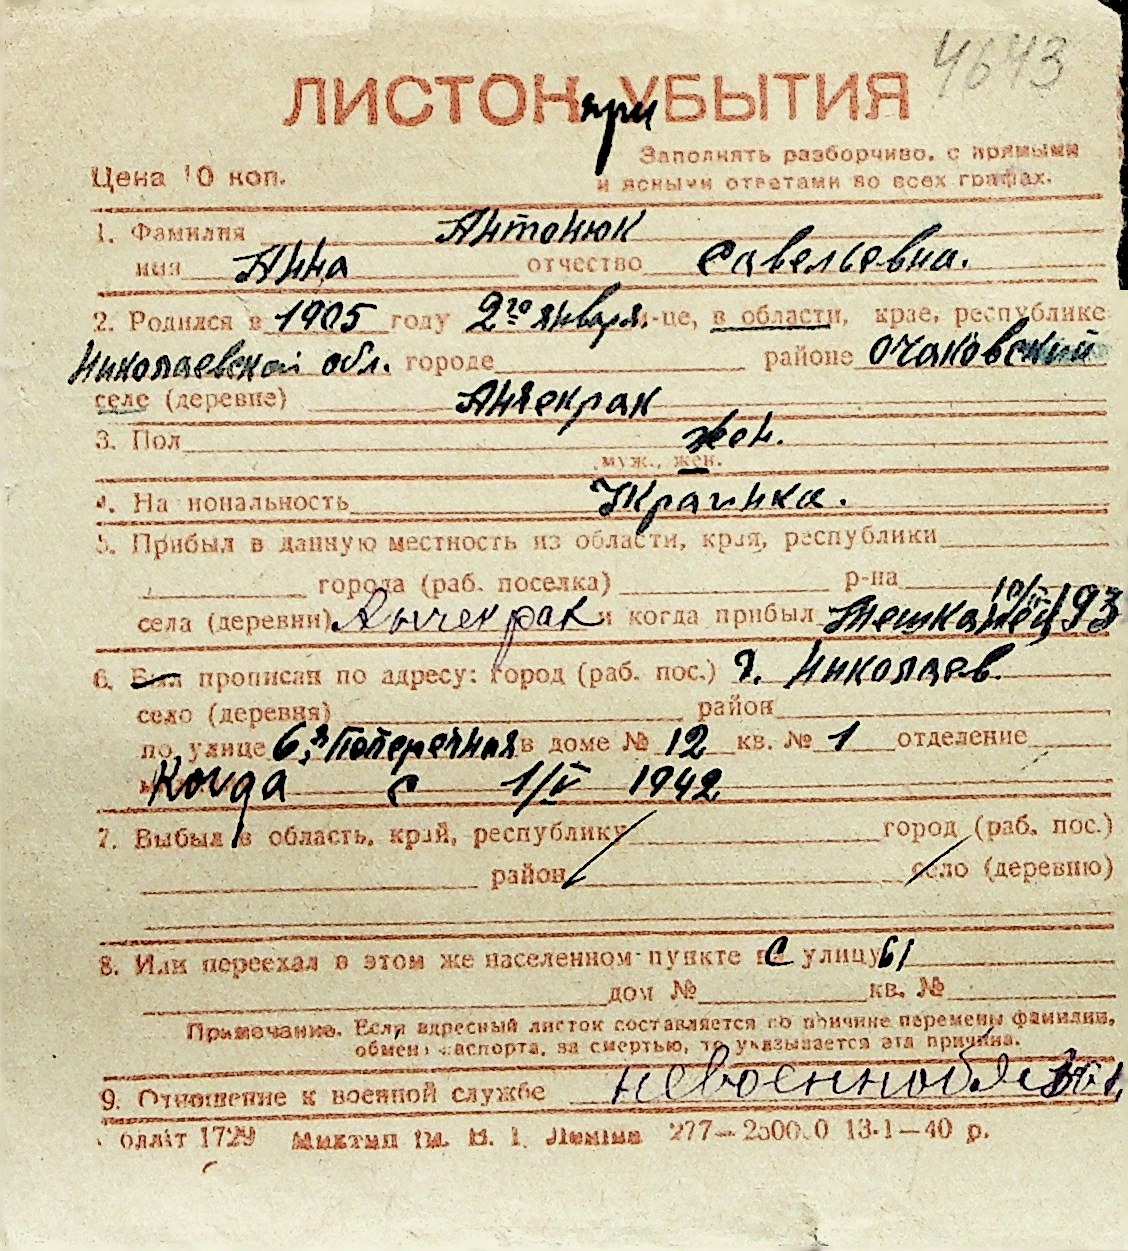 4643
ЛИСТОК при УБЫТИЯ
Заполнять разборчиво, с прямыми
Цена 10 коп.
и ясными ответами во всех графах.
1. Фамилия Антонюк
имя Анна отчество Савельевна.
2. Родился в 1905 году 2го января м-це, в области, крае, республике
Николаевской обл. городе районе Очаковский
селе (деревне) Анчекрак
3. Пол жен.
муж., жен.
4. Национальность Украинка.
5. Прибыл в данную местность из области, края, республики
города (раб. поселка) р-на
села (деревни) Анчекрак и когда прибыл 193
6. Был прописан по адресу: город (раб. пос.) г. Николаев.
село (деревня) район
по улице 6,я Поперечная в доме № 12 кв. № 1 отделение
Когда с 1/V 1942
7. Выбыл в область, край, республику город (раб. пос.)
район село (деревню)
8. Или переехал в этом же населенном пункте с улицу 61
дом № кв. №
Примечание. Если адресный листок составляется по причине перемены фамилии,
обмена паспорта, за смертью, то указывается эта причина.
9. Отношение к военной службе невоеннообяз
Обллит 1729 им. В. И. Ленина 277— 13-1—40 р.